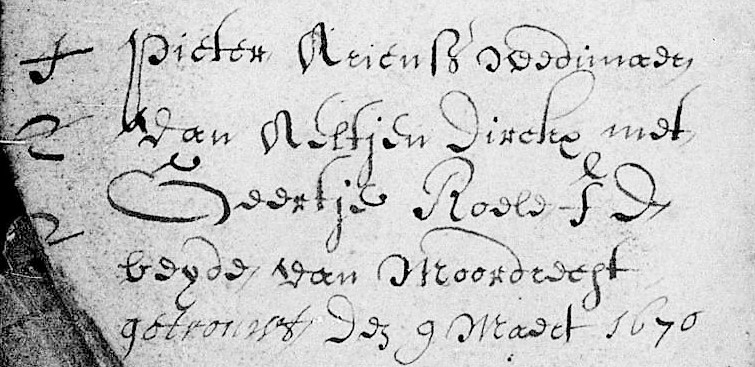 Pieter Ariensz weduwnaer
van Aeltjen Dircks met
Geertje Roele D
beyde van Moordrecht
getrouwt den 9 Maert 1670